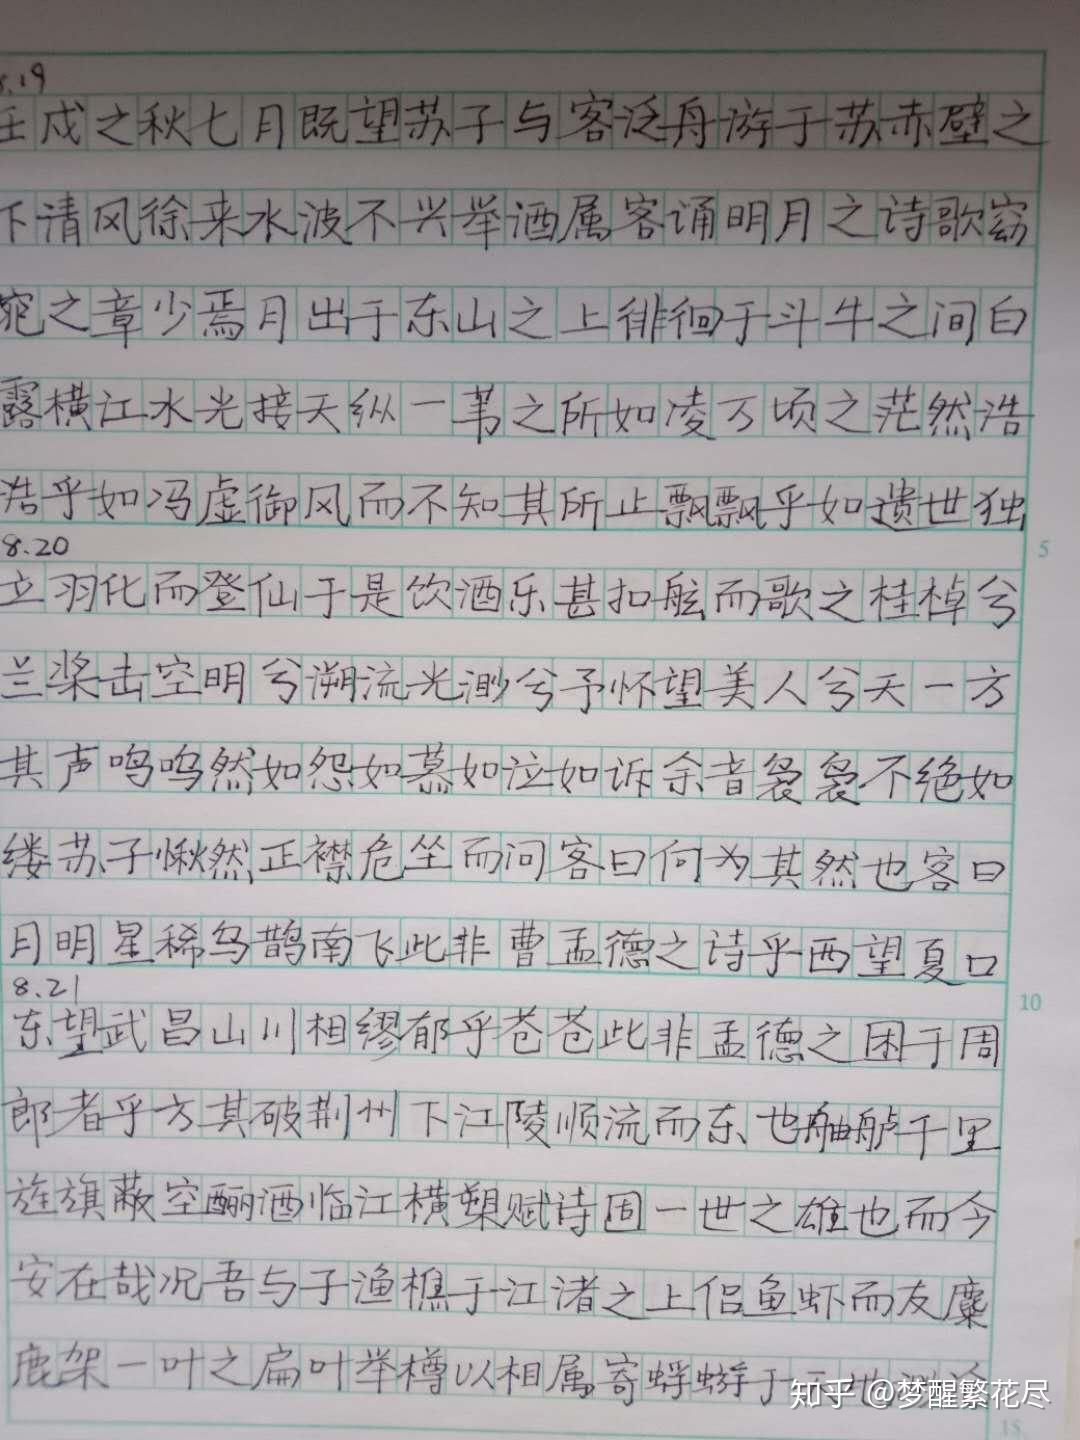 8.19
壬戌之秋七月既望苏子与客泛舟游于苏赤壁之
下清风徐来水波不兴举酒属客诵明月之诗歌窈
窕之章少焉月出于东山之上徘徊于斗牛之间白
露横江水光接天纵一苇之所如凌万顷之茫然浩
浩乎如冯虚御风而不知其所止飘飘乎如遗世独
5
8.20
立羽化而登仙于是饮酒乐甚扣舷而歌之桂棹兮
兰桨击空明兮溯流光渺兮予怀望美人兮天一方
其声鸣呜然如怨如慕如泣如诉余音袅袅不绝如
缕苏子愀然正襟危坐而问客曰何为其然也客曰
月明星稀乌鹊南飞此非曹孟德之诗乎西望夏口
10
8.21
东望武昌山川相缪郁乎苍苍此非孟德之困于周
郎者乎方其破荆州下江陵顺流而东也舳舻千里
旌旗蔽空酾酒临江横槊赋诗固一世之雄也而今
安在哉况吾与子渔樵于江渚之上侣鱼虾而友麋
鹿架一叶之扁叶举樽以相属寄蜉蝣于
知乎 @梦醒繁花尽
15